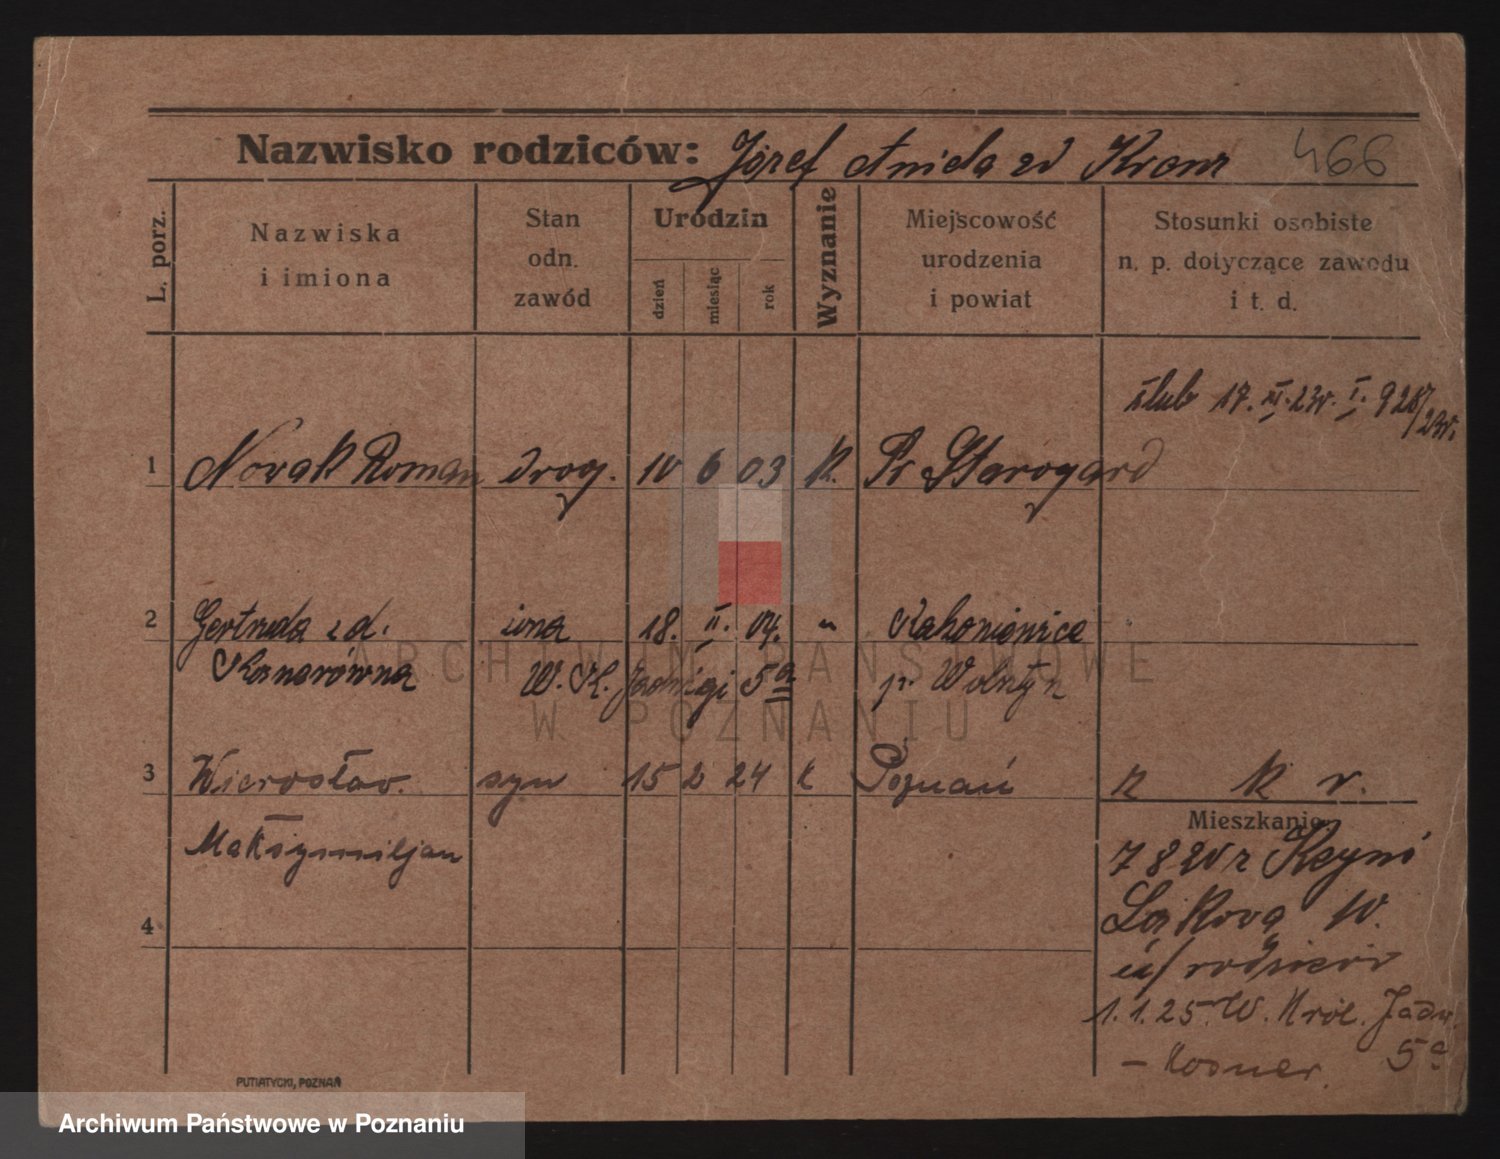 Nazwisko rodziców: Józef Aniela zd Kranz 466
L. porz.
Nazwiska
i imiona
Stan
odn.
zawód
Urodzin
dzień
miesiąc
rok
Wyznanie
Miejscowość
urodzenia
i powiat
Stosunki osobiste
n. p. dotyczące zawodu
i t. d.
ślub 17. XI. 23r. I. 928/23r.
1 Novak Roman drog. 10 6 03 K. Pr Starogard
2 Gertruda zd. żona 18. II. 04. " Rakoniewice
Kosnerówna W. Kl. Jadwigi 5a p. Wolsztyn
3 Wierosław. syn 15 2 24 k Poznań r k r.
Maksymiljan
Mieszkanie
7 8 20 z Kcyni
4
Łąkova 10.
u/ rodziców
1.1.25 W. Król. Jadw.
– Kosner. 5a
PUTIATYCKI, POZNAŃ
ARCHIWUM PAŃSTWOWE
W POZNANIU
Archiwum Państwowe w Poznaniu